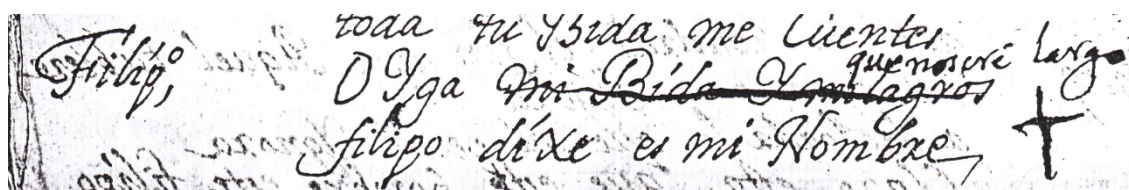 toda tu Bida me Cuentes
Filipo, OYga mi Bida Y milagros que no seré largo
filipo dixe es mi Nombre